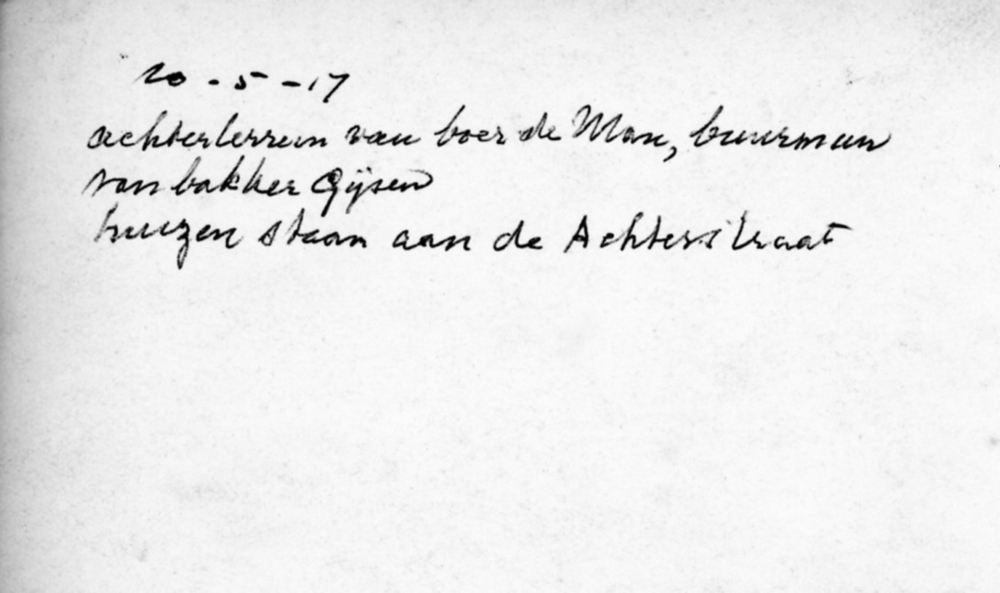 20-5-17
achterterrein van boer de Man, buurman
van bakker Gijsen
huizen staan aan de Achterstraat